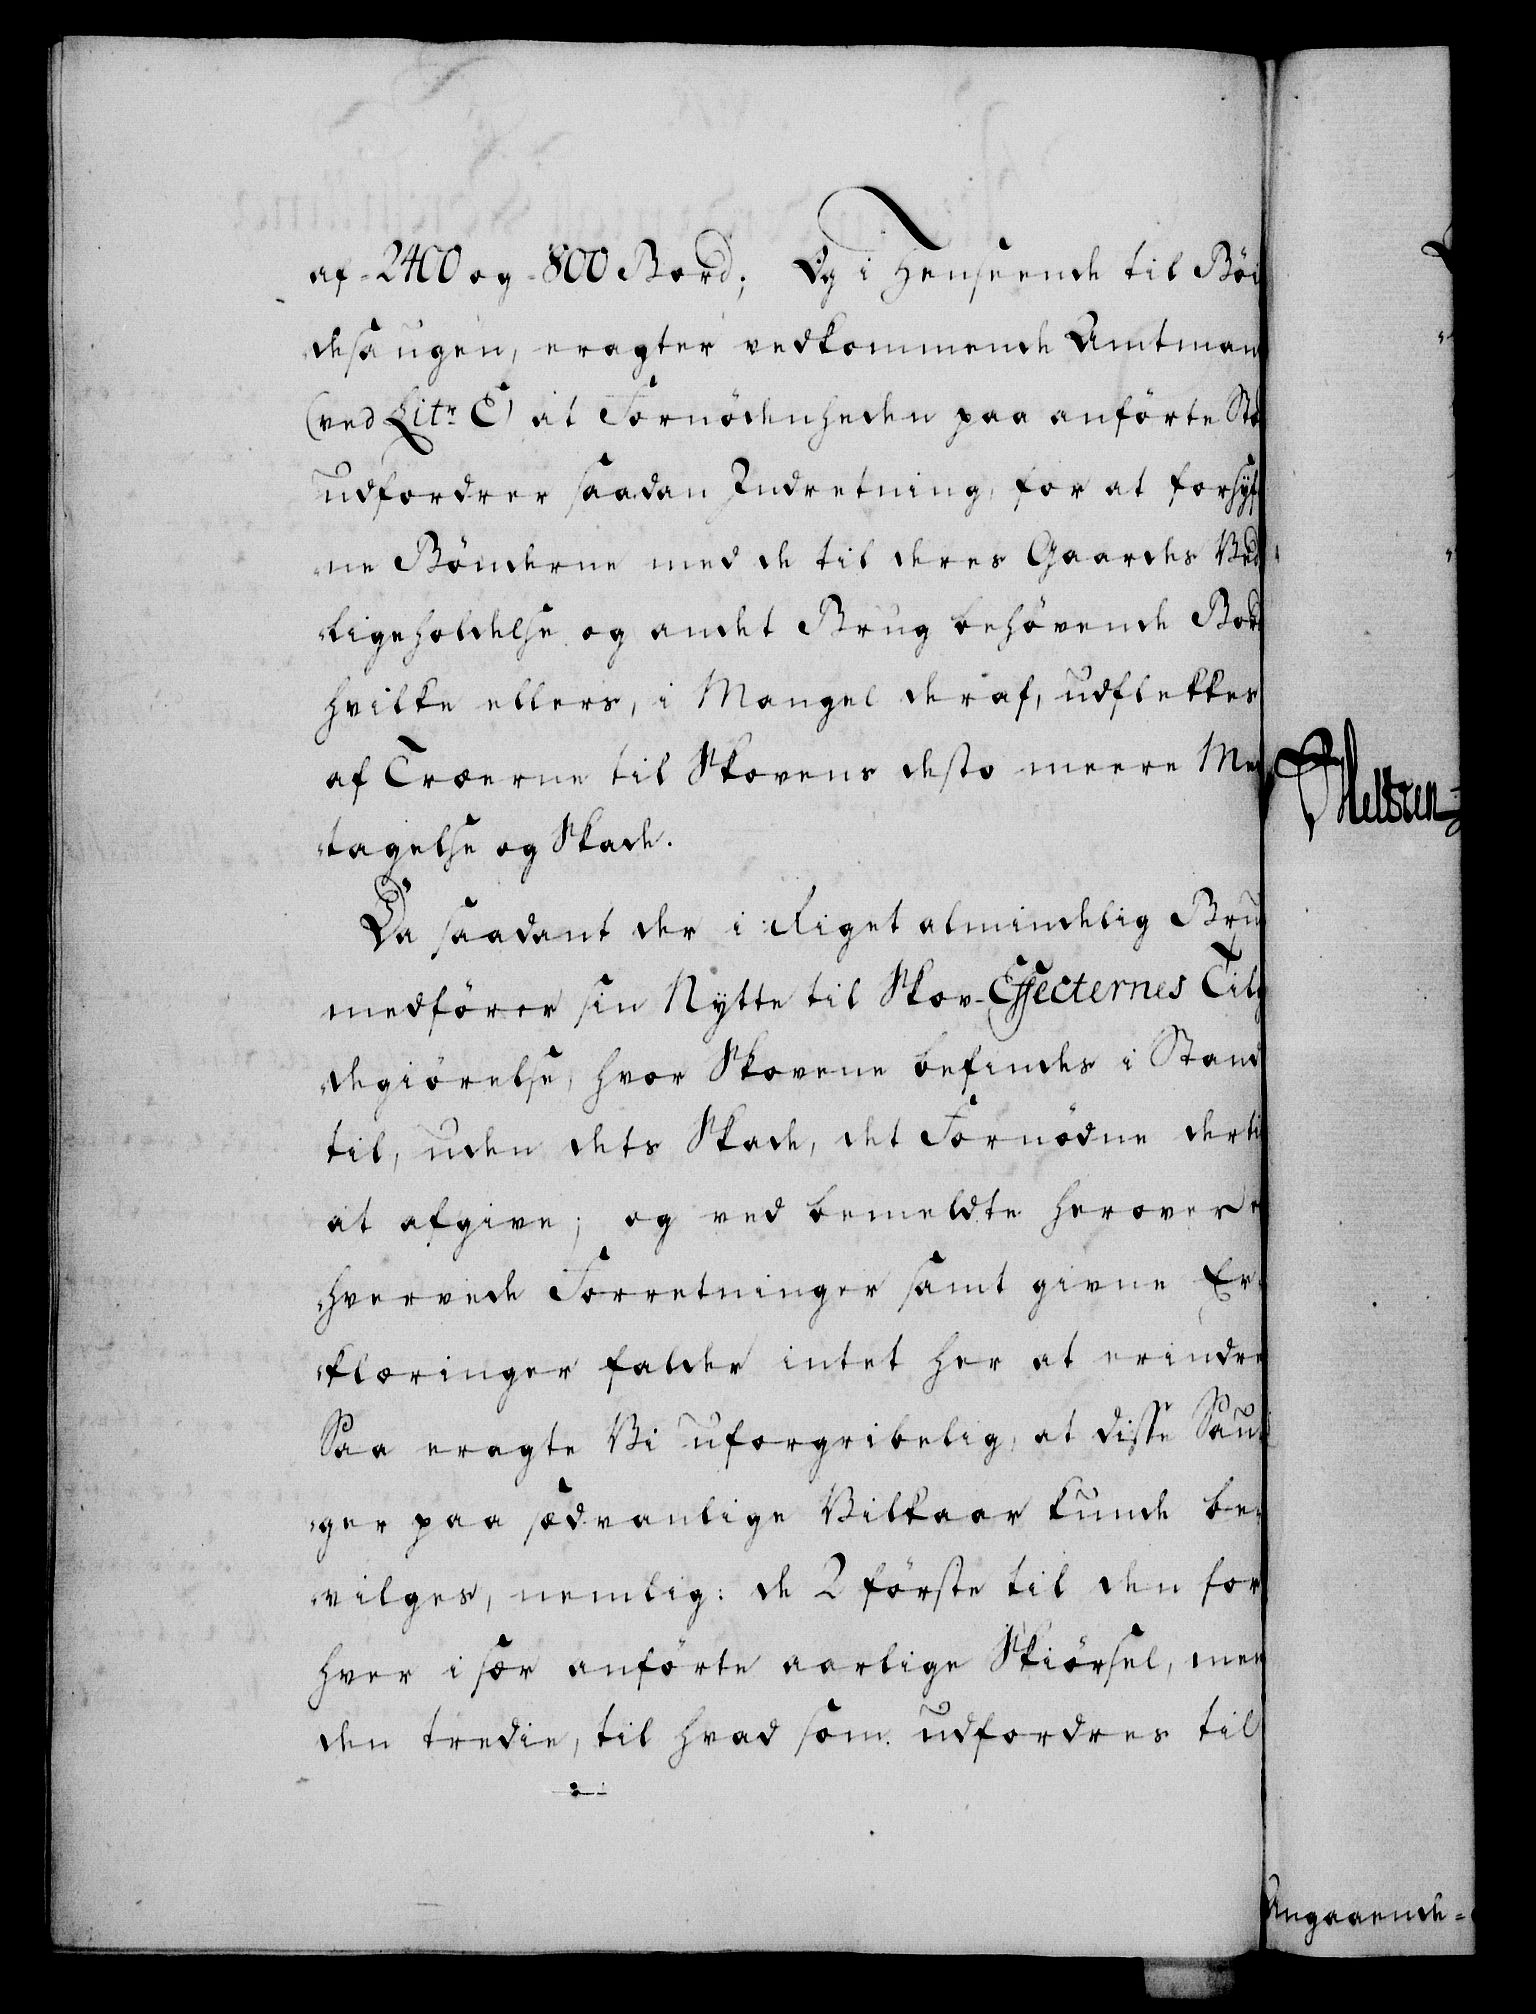 af 2400 og 800 Bord; Og i Henseende til Böi
desaugen, eragter vedkommende Amtman
(ved Litr. C) at Fornödenheden paa anförte St
udfordrer saadan Indretning, for at forsÿ-
ne Bönderne med de til deres Gaardes Ved
ligeholdelse og andet Brug behövende Bord
hvilke ellers, i Mangel deraf, udflekkes
af Træerne til Skovens desto meere Med
tagelse og Skade.
Da saadant der i Riget almindelig Bru
medförer sin Nÿtte til Skov-Effecternes Til
degiörelse, hvor Skovene befindes i Stand
til, uden dets Skade, det Fornödne dertil
at afgive; og ved bemeldte herover er
hvervede Forretninger samt givne Er-
klæringer falder intet her at erindre
Saa eragte Vi uforgribelig, at disse Sau
ger paa sædvanlige Vilkaar kunde be-
vilges, nemlig: de 2 förste til den for
hver i sær anförte aarlige Skiörsel, men
den tredie, til hvad som udfordres til
Angaaende